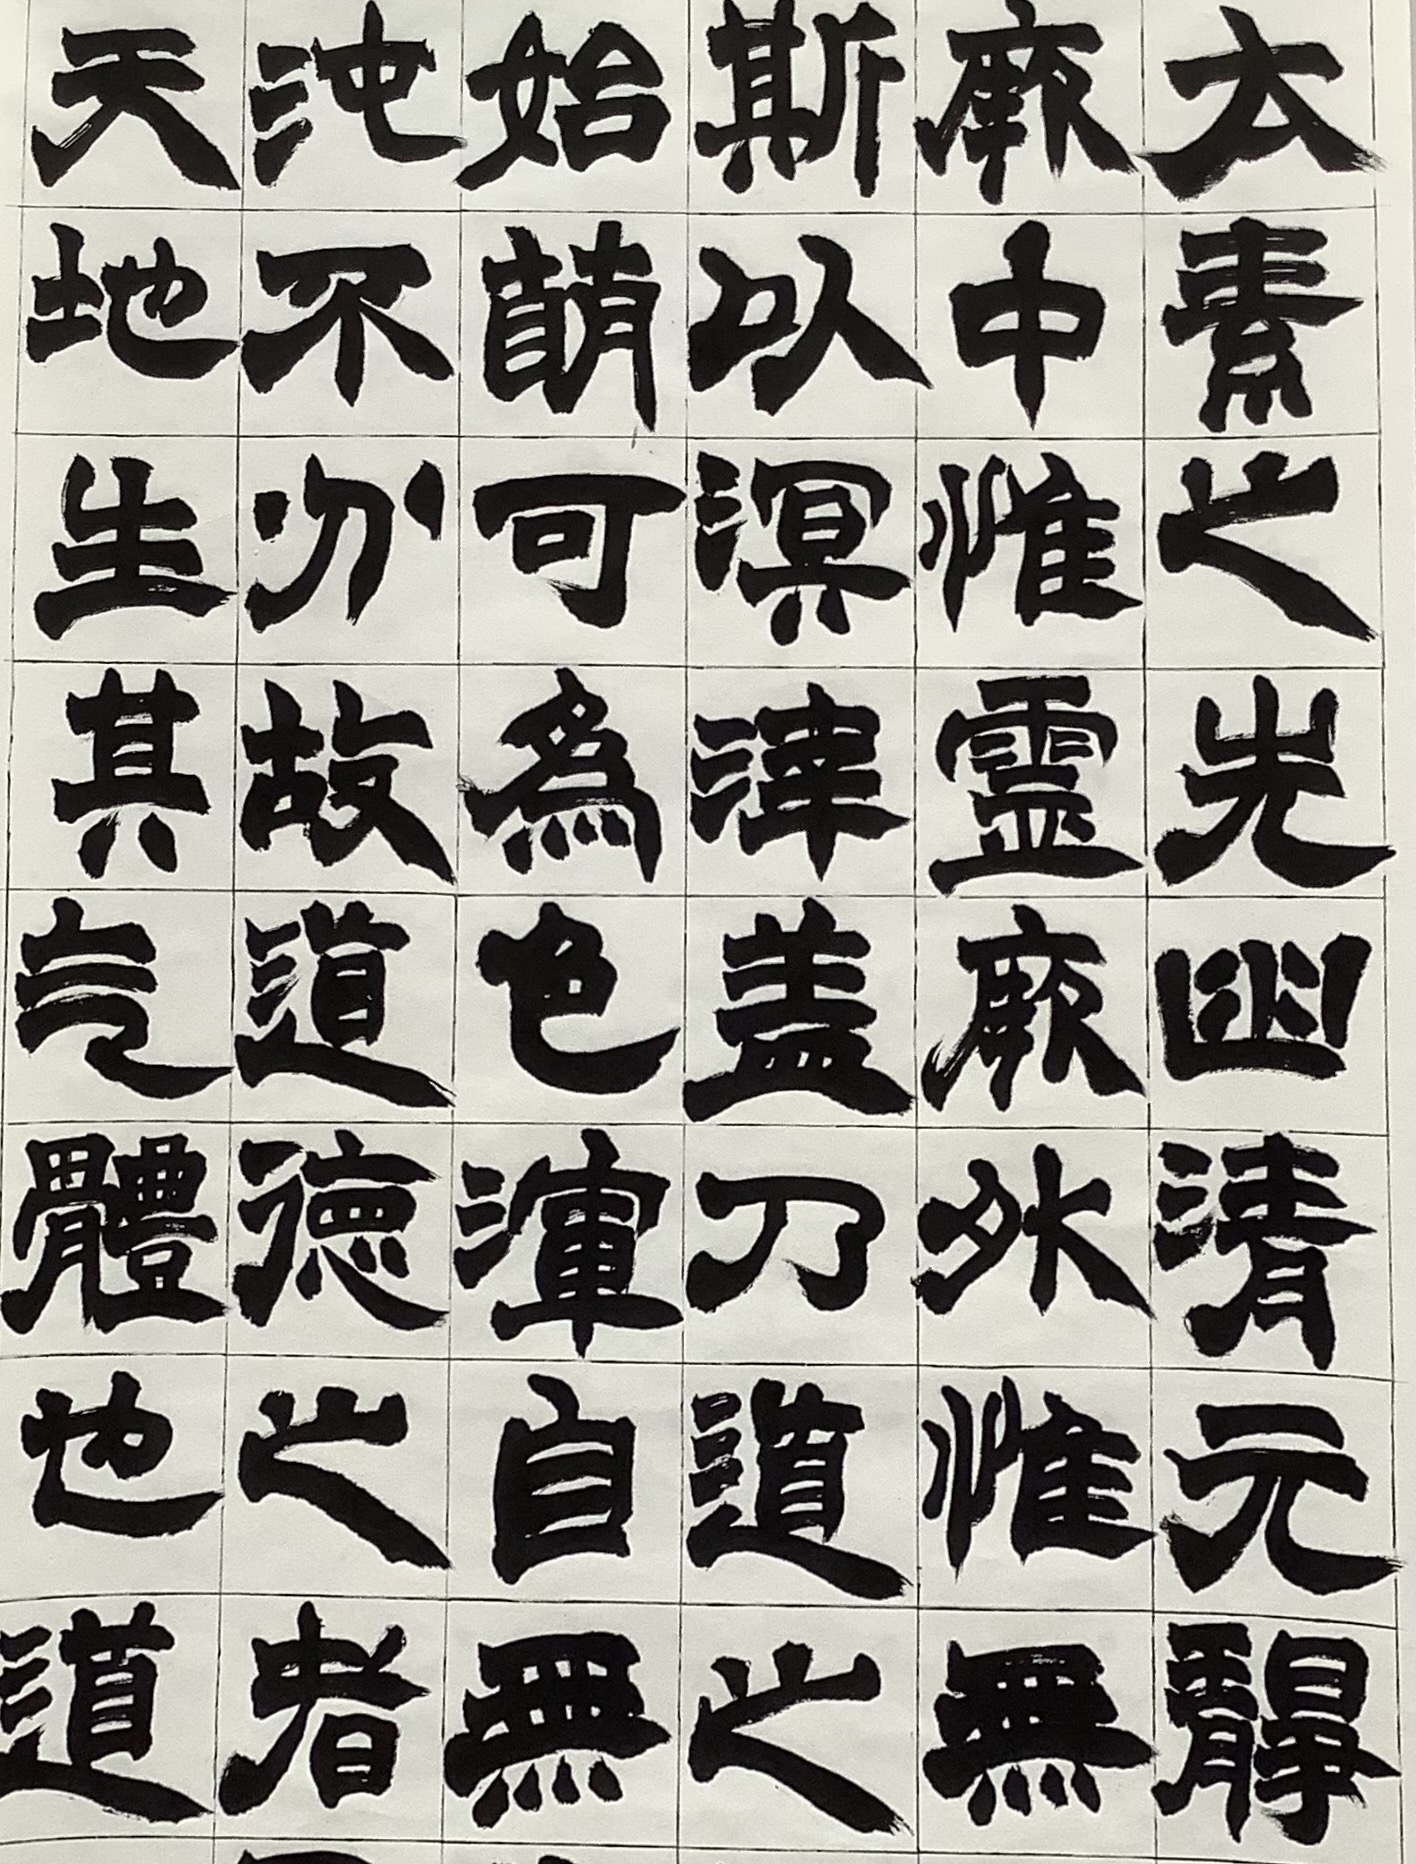 太素之先幽清元靜
厥中惟靈厥外惟無
斯以溟涬盖乃道之
始萌可為色渾自無
沌不分故道德之者
天地生其气體也道